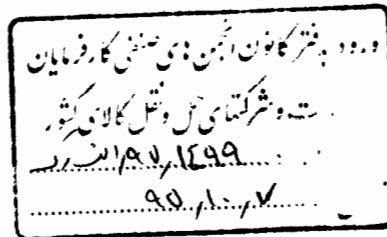 ورود به دفتر کانون انجمن های صنفی کارفرمایان
و شرکتهای حمل و نقل کالای کشور
۹۷/۱۴۹۹
۹۵/۱۰/۷